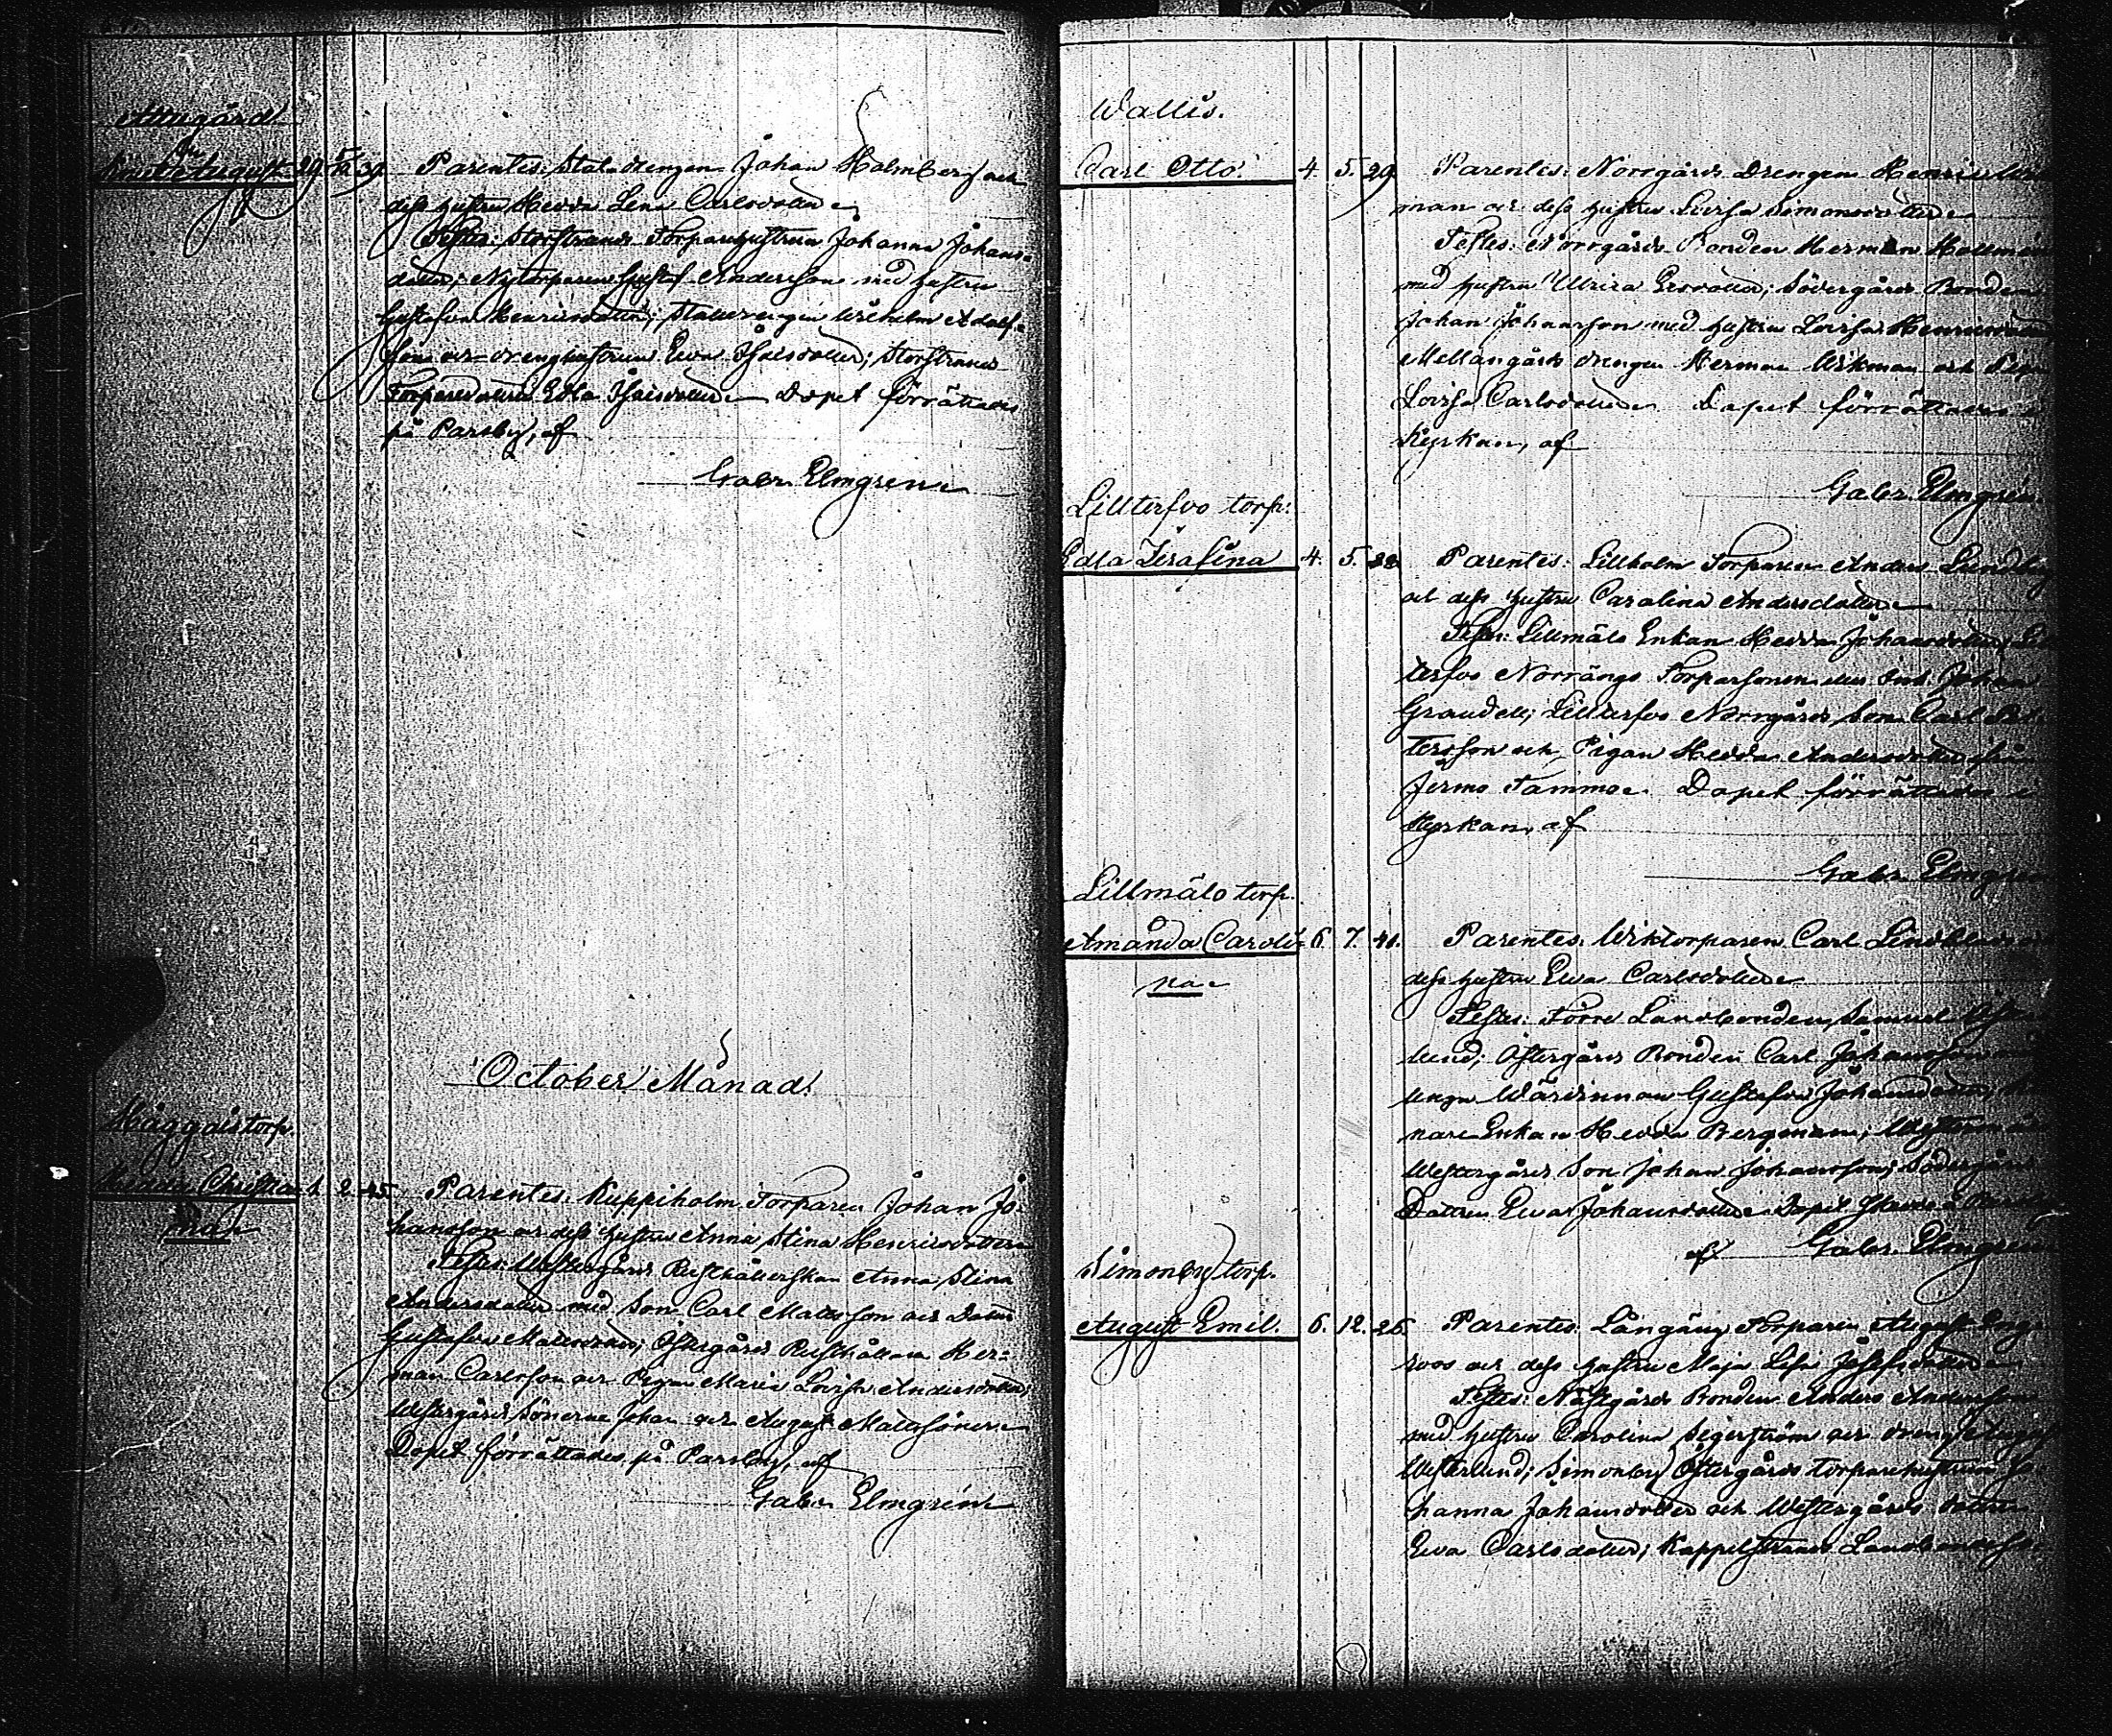 Attugård
August 29 5/10 39. Parentes: Stat-drengen Johan Holmberg och
dess hustru Hedda Lena Carlsdotter
Testes: Storstrands Torparehustrun Johanna Johans-
dotter; Nytorparen Gustaf Andersson med hustru
Gustafva Henricsdotter; Stalldrengen Wilhelm Adolfs-
son och drenghustrun Ewa Isaksdotter; Storstrands
Torparedottren Edla Isaksdotter. Dopet förrättades
på Pargby, af
Gabr. Elmgren
October Månad.
Häggaistorp.
1. 2. 45. Parentes: Kuppiholm Torparen Johan Jo-
hansson och dess hustru Anna Stina Henricsdotter
Testes: Westergårds Rusthållerskan Anna Stina
Andersdotter med Son Carl Matsson och Dotter
Gustafva Matsdotter; Östergårds Rusthållaren Her-
man Carlsson och Pigan Maria Lovisa Andersdotter;
Westergårds Sönerne Johan och August Matssöner
Dopet förrättades på Pargby, af
Gabr. Elmgren
Wallis.
Carl Otto. 4. 5. 29. Parentes: Norrgårds Drengen Henric
man och dess hustru Lovisa Simonsdotter
Testes: Norrgårds Bonden Herman Hollmén
med hustru Ulrica Ersdotter; Södergårds Bonden
Johan Johansson med hustru Lovisa Henricsdotter
Mellangårds drengen Herman Wikman och Pigan
Lovisa Carlsdotter. Dopet förrättades i
Kyrkan, af
Gabr. Elmgren.
Lilltersvo torp.
Edla Serafina 4. 5. 28 Parentes: Lillholm Torparen Anders
och dess hustru Carolina Andersdotter
Testes: Lillmälo Enkan Hedda Johansdotter; Lil
tersvo Norrängs Torparsonen Johan
Grandell; Lilltersvo Norrgårds Son Carl Pet
tersson och Pigan Hedda Andersdotter från
Jermo Tammo. Dopet förrättades i
Kyrkan, af
Gabr. Elmgren
Lillmälo torp.
Amanda Caroli- 6. 7. 41. Parentes: Wiktorparen Carl Lindblad
na
dess hustru Ewa Carlsdotter
Testes: Förre Landbonden Samuel
lund; Östergårds Bonden Carl Johansson
unga Wärdinnan Gustafva Johansdotter;
nare Enkan Hedda Bergman;
Westergårds Son Johan Johansson; Södergårds
Dottren Ewa Johansdotter. Dopet
af Gabr. Elmgren
Simonby torp.
August Emil. 6. 12. 26. Parentes: Långäng Torparen August Eng-
roos och dess hustru Maja Lisa Josefsdotter
Testes: Nästgårds Bonden Anders Andersson
med hustru Carolina Segerström och dreng August
Westerlund; Simonby Östergårds torparehustrun Jo
hanna Johansdotter och Westergårds dotter
Ewa Carlsdotter; Kappelstrand